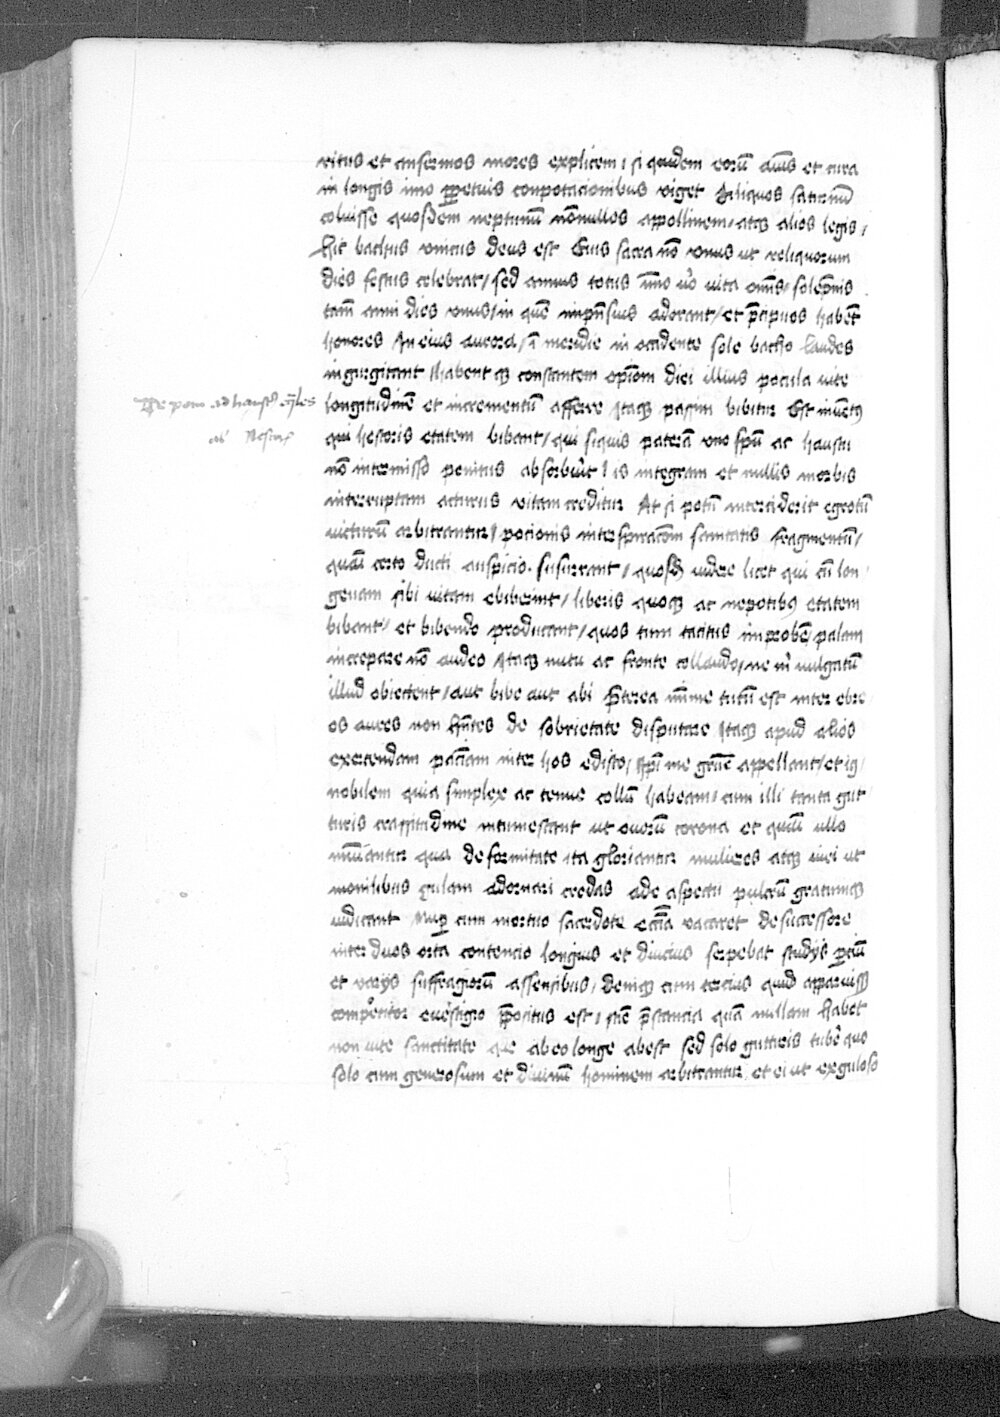 ritus et ansermos mores explicem / si quidem eorū aīus et cura
in longis imo ꝑpetuis conpotacionibus viget Aliquos saturnū
coluisse quosdem neptunū nōnullos appollinem / atqꝫ alios legis /
hic bachus vnicus deus est Cuius sacra nō vnus ut reliquorum
dies festus celebrat / sed annus totus īmo vo vita om̄s / solēpnis
tam̄ anni dies vnus / in quē inpēsius adorant / et p̄cipuos habēt
honores In eius aurora / ī meridie in occidente sole bacho laudes
ingurgitant Habent qꝫ constantem opīom dici illius pocula vite
longitudinē et incrementū afferre Itaqꝫ passim bibitur Est inuētus
qui hestoris etatem bibant / qui siquis paterā vno spū ac haustu
nō intermisso penitus absorbuīt / is integram et nullis morbis
interruptam acturus vitam creditur At si potū interciderit egrotū
victurū arbitrantur / pocionis interspiracōm sanitatis fragmentū /
quasi certo ducti auspicio. susurrant / quosdā videre licet qui cū lon
geuam sibi vitam ebiberint / liberis quoqꝫ ac nepotibus etatem
bibant / et bibendo producant / quos tum tacitus improbē palam
increpare nō audeo Itaqꝫ nutu ac fronte collaudo / ne m̄ vulgatū
illud obicitent / aut bibe aut abi p̄terea mīnime tutū est inter ebre
os aures non hn̄tes de sobrietate disputare Itaqꝫ apud alios
exercendam pacīam inter hos edisco / hpī me grecē appellant / et ig
nobilem quia simplex ac tenue collū habeam / cum illi tanta gut
turis crassitudine intumescant ut ouorū corona et quasi ullo
muniantur qua deformitate ita gloriantur mulieres atqꝫ viri ut
monilibus gulam adornari credas ade aspectu pulcrū gratumqꝫ
iudicant Nuꝑ cum mortuo sacerdote eccīa vacaret de successore
inter duos orta contencio longius et diucius serpebat studijs ꝑciū
et varijs suffragiorū assensibus / deniqꝫ cum tercius quid apparuissꝫ
competitor euestigio p̄positus est / sine p̄stancia quā nullam habet
non vite sanctitate que ab eo longe abest sed solo gutturis tubē quo
solo cum generosum et diuinū hominem arbitrantur et ei ut exguloso
De poto ad haustū